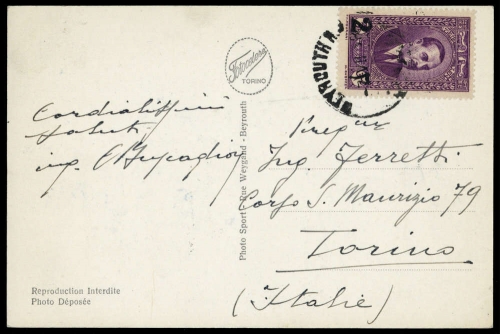 Cordialissimi
saluti
ing.
Fotocelere
TORINO
Photo Sport - Rue Weygand - Beyrouth
BEYROUTH R.P.
2
Ing. Ferretti
Corso S. Maurizio 79
Torino
(Italie)
Reproduction Interdite
Photo Déposée